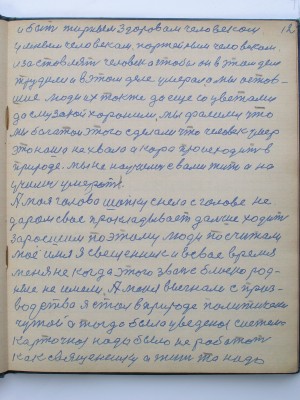 12
и быть первым здоровам человеком
умным человекам, портейным человекам.
и заставлять человека чтобы он в этом деле
трудился в этом деле умерал, а мы остов-
шие люди их тоже до ещё со цветами
до слузакой хоронили, мы фалимся что
мы богаты этого сделали что человек умер
это наша не хвала а кора происходить в
природе. мы не научились вами жить а на
учились умерать!
А моя голова шапку снела с голове не
даром свае прокладывает далше ходить
заросшем поэтому люди посчитали
моё имя я свещенник и в свае время
меня не когда этого звать блиско род-
ные не имели. А меня выгнали с проиэ-
водства я стал в природе политиком
чужой а тогда было уведена система
карточная надо было не работать
как священнику а жить то надо